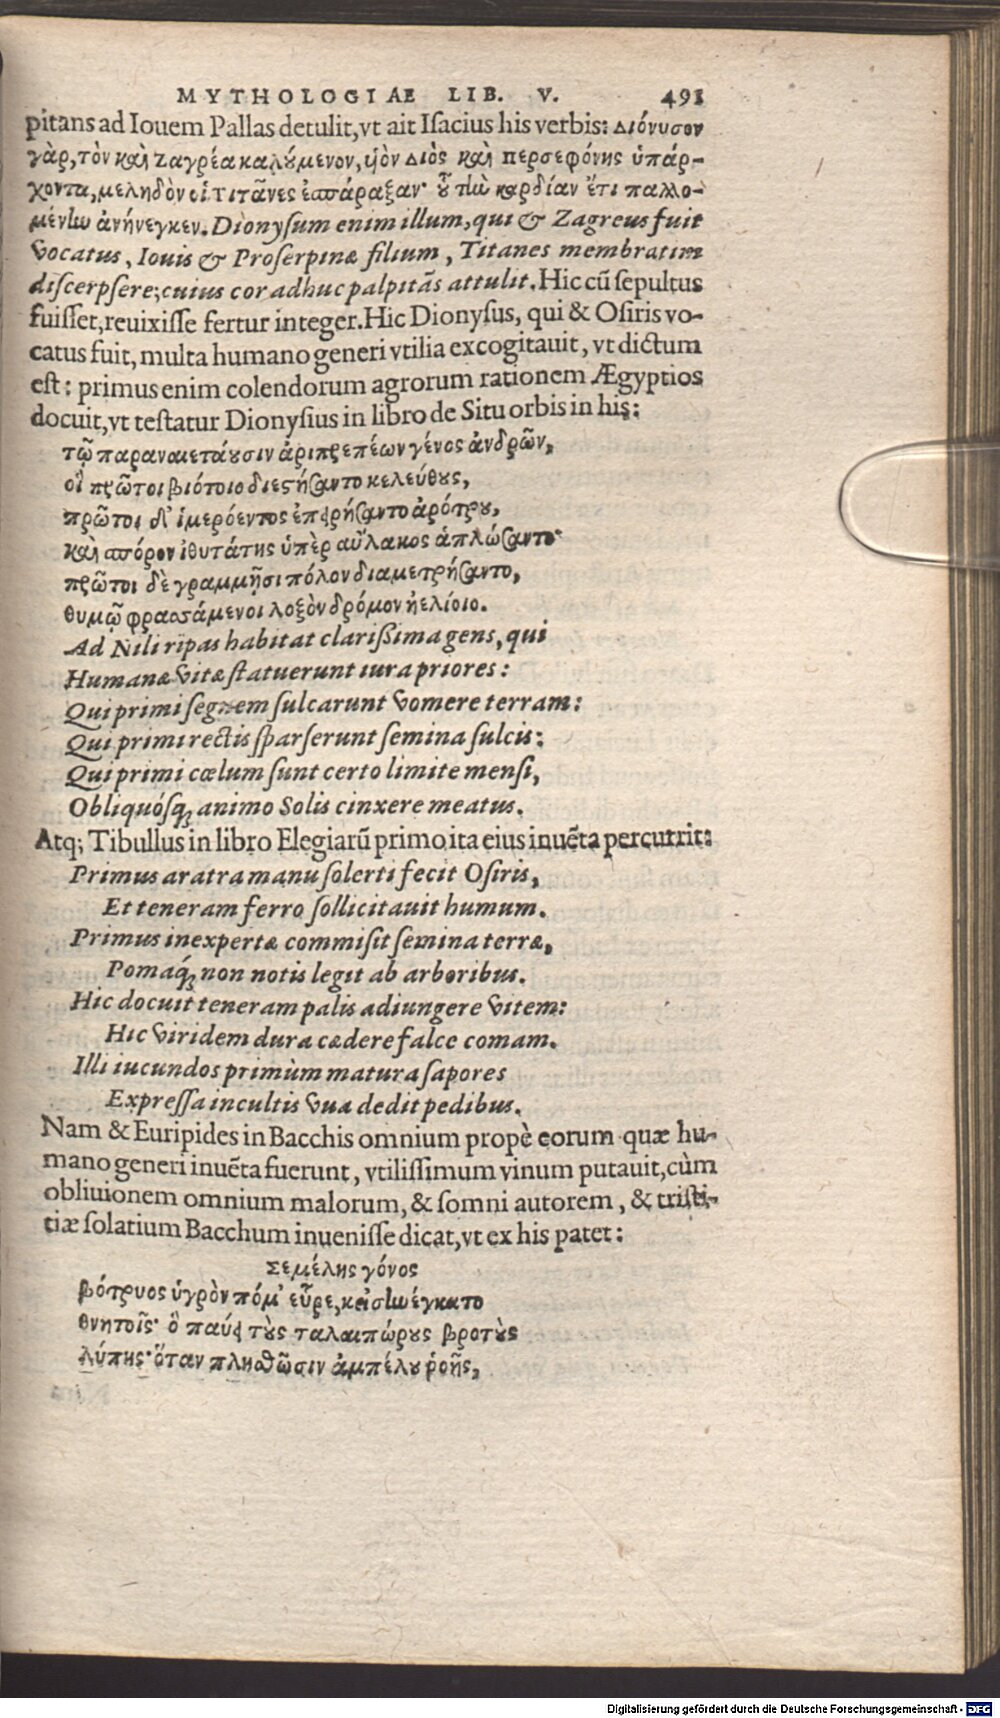 MYTHOLOGIAE LIB. V. 491
pitans ad Iouem Pallas detulit, vt ait Isacius his verbis: Διόνυσον
γὰρ, τὸν καὶ Ζαγρέα καλούμενον, υἱὸν Διὸς καὶ Περσεφόνης ὑπάρ-
χοντα, μεληδὸν οἱ Τιτᾶνες ἐσπάραξαν· οὗ τὴν καρδίαν ἔτι παλλο-
μένην ἀνήνεγκεν. Dionysum enim illum, qui & Zagreus fuit
vocatus, Iouis & Proserpinæ filium, Titanes membratim
discerpsere; cuius cor adhuc palpitãs attulit. Hic cũ sepultus
fuisset, reuixisse fertur integer. Hic Dionysus, qui & Osiris vo-
catus fuit, multa humano generi vtilia excogitauit, vt dictum
est: primus enim colendorum agrorum rationem Ægyptios
docuit, vt testatur Dionysius in libro de Situ orbis in his:
τῷ παραναιετάουσιν ἀριπρεπέων γένος ἀνδρῶν,
οἳ πρῶτοι βιότοιο διεστήσαντο κελεύθους,
πρῶτοι δ' ἱμερόεντος ἐπειρήσαντο ἀρότρου,
καὶ σπόρον ἰθυτάτης ὑπὲρ αὔλακος ἁπλώσαντο·
πρῶτοι δὲ γραμμῇσι πόλον διαμετρήσαντο,
θυμῷ φρασσάμενοι λοξὸν δρόμον ἠελίοιο.
Ad Nili ripas habitat clarissima gens, qui
Humanæ vitæ statuerunt iura priores:
Qui primi segnem sulcarunt vomere terram:
Qui primi rectis sparserunt semina sulcis:
Qui primi cœlum sunt certo limite mensi,
Obliquósq; animo Solis cinxere meatus.
Atq; Tibullus in libro Elegiarũ primo ita eius inuẽta percurrit:
Primus aratra manu solerti fecit Osiris,
Et teneram ferro sollicitauit humum.
Primus inexpertæ commisit semina terræ,
Pomaq́; non notis legit ab arboribus.
Hic docuit teneram palis adiungere vitem:
Hic viridem dura cædere falce comam.
Illi iucundos primùm matura sapores
Expressa incultis vua dedit pedibus.
Nam & Euripides in Bacchis omnium propè eorum quæ hu-
mano generi inuẽta fuerunt, vtilissimum vinum putauit, cùm
obliuionem omnium malorum, & somni autorem, & tristi-
tiæ solatium Bacchum inuenisse dicat, vt ex his patet:
Σεμέλης γόνος
βότρυος ὑγρὸν πόμ' εὗρε, κεἰσηνέγκατο
θνητοῖς· ὃ παύει τοὺς ταλαιπώρους βροτοὺς
λύπης· ὅταν πλησθῶσιν ἀμπέλου ῥοῆς,
Digitalisierung gefördert durch die Deutsche Forschungsgemeinschaft - DFG